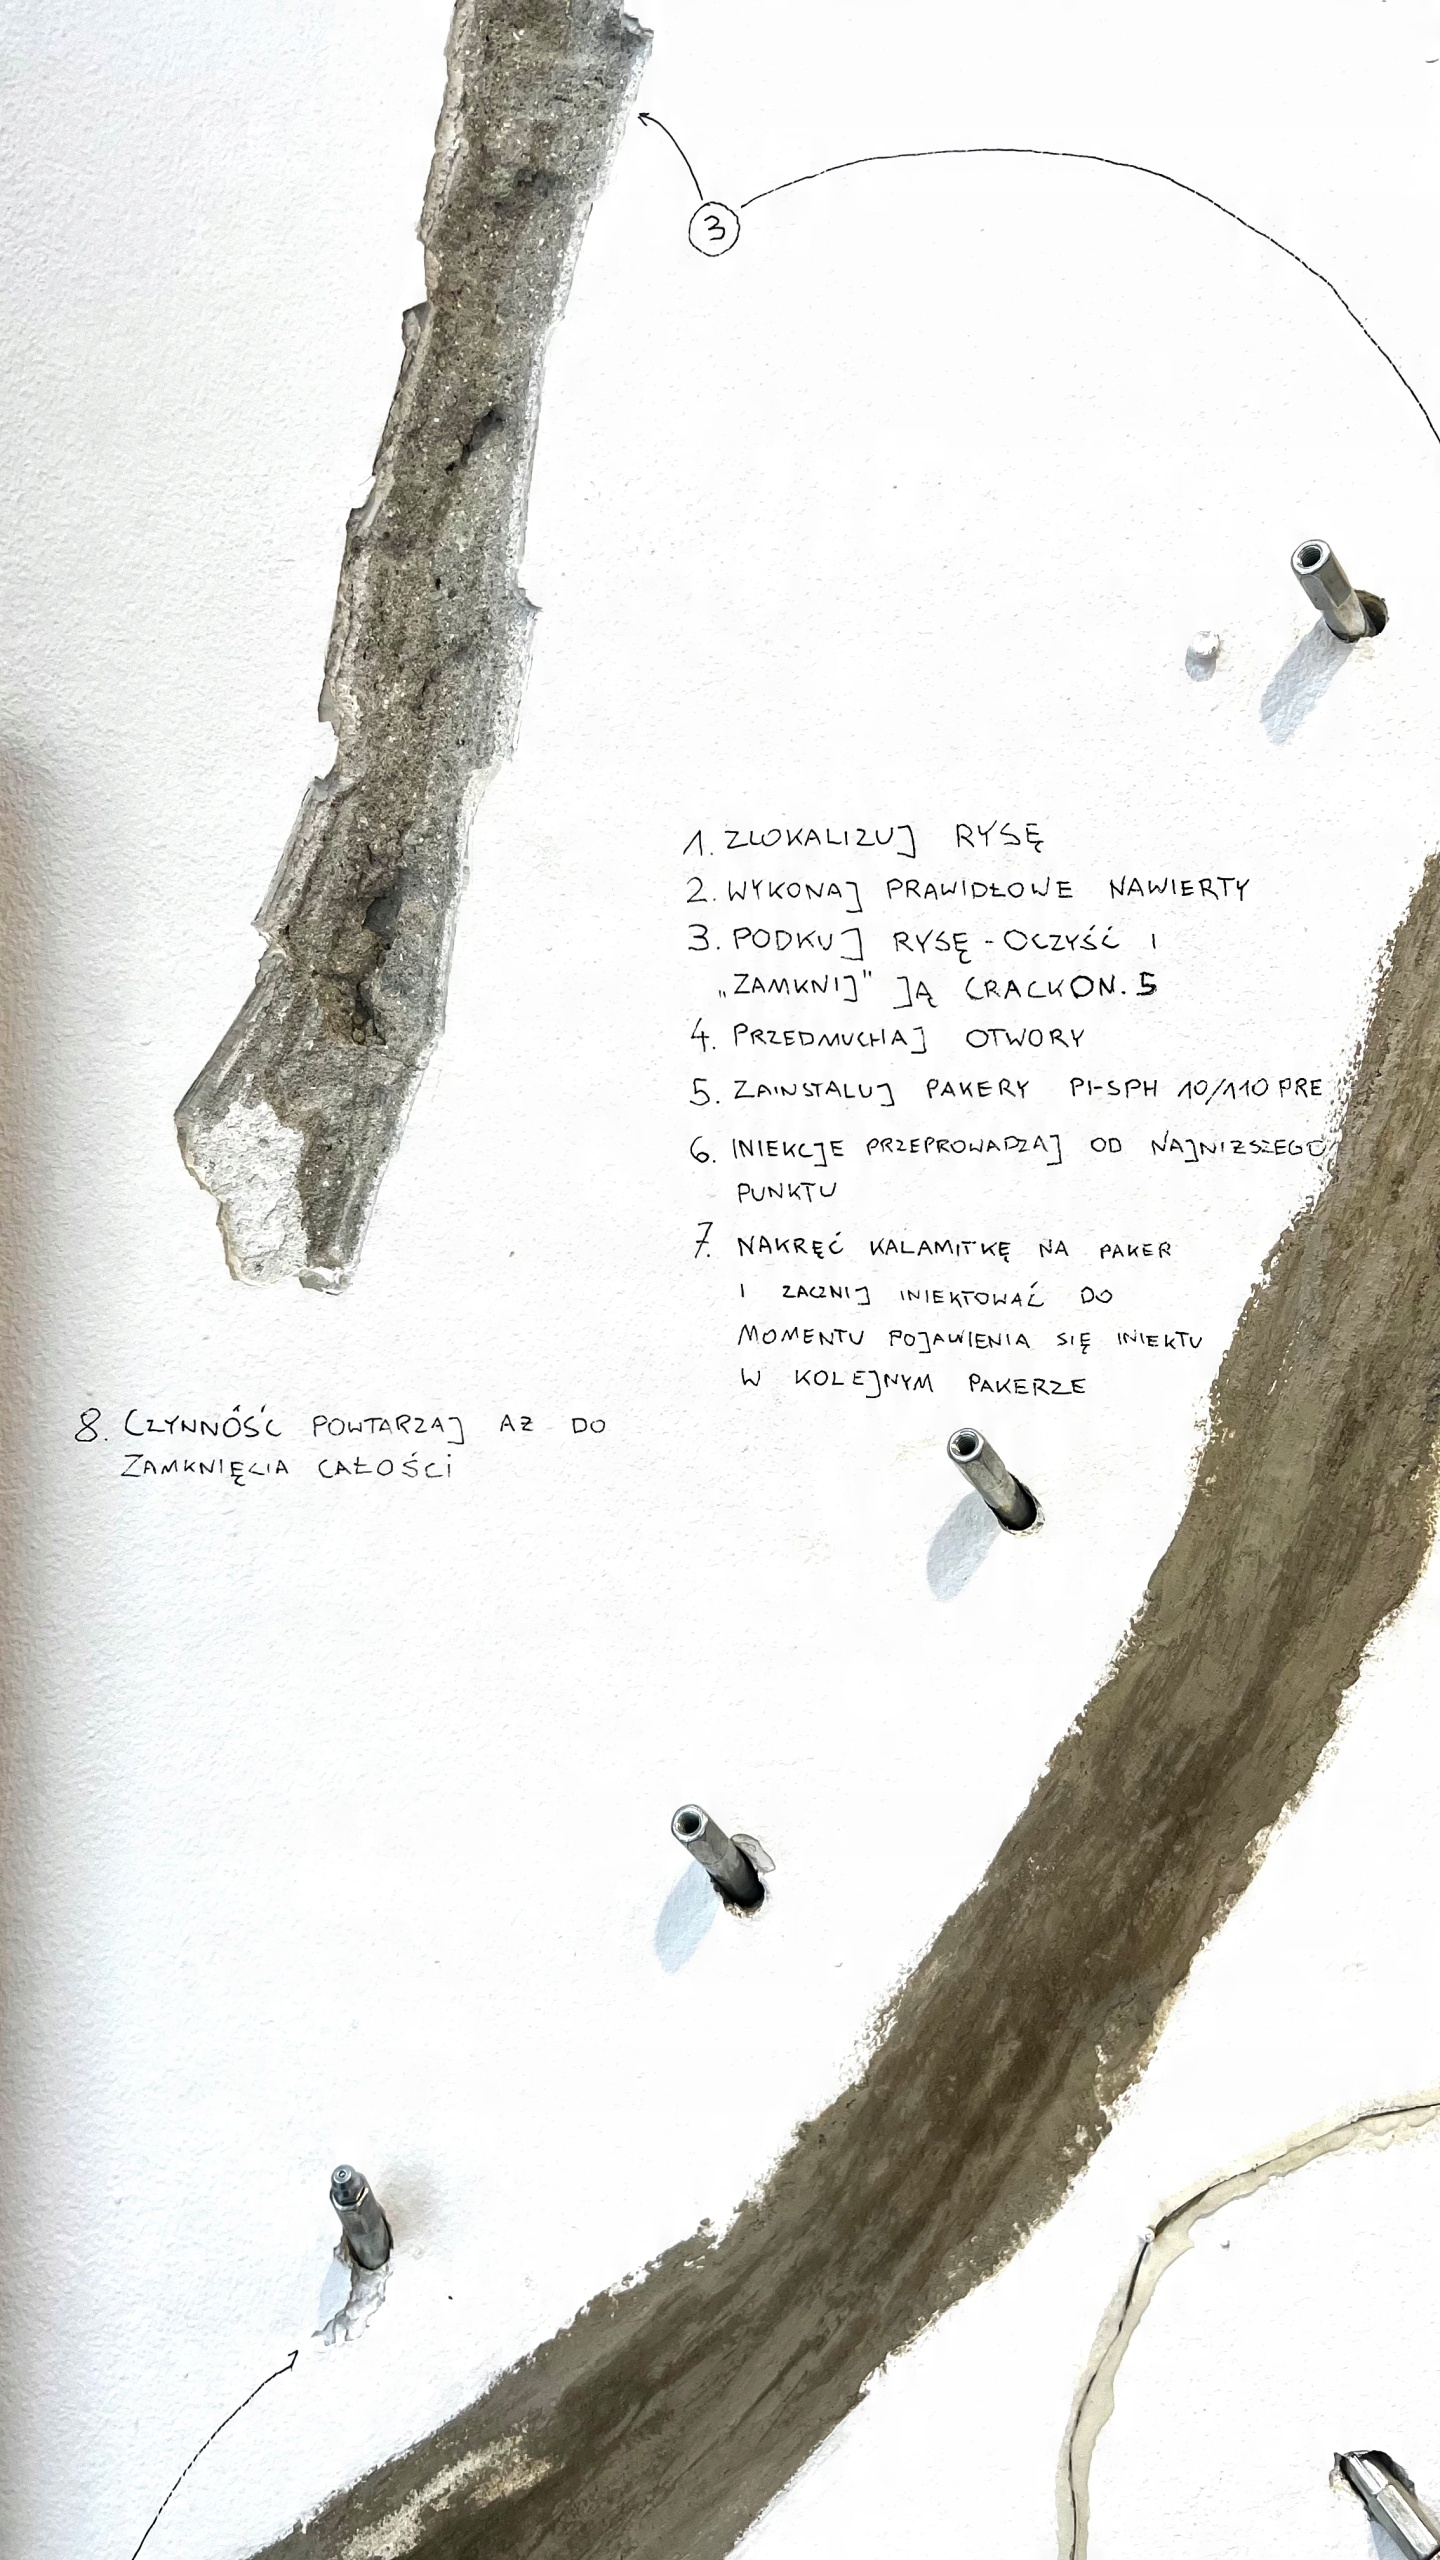 3
1. ZLOKALIZUJ RYSĘ
2. WYKONAJ PRAWIDŁOWE NAWIERTY
3. PODKUJ RYSĘ - OCZYŚĆ I
„ZAMKNIJ" JĄ CRACKON. 5
4. PRZEDMUCHAJ OTWORY
5. ZAINSTALUJ PAKERY PI-SPH 10/110 PRE
6. INIEKCJE PRZEPROWADZAJ OD NAJNIZSZEGO
PUNKTU
7. NAKRĘĆ KALAMITKĘ NA PAKER
I ZACZNIJ INIEKTOWAĆ DO
MOMENTU POJAWIENIA SIĘ INIEKTU
W KOLEJNYM PAKERZE
8. CZYNNOŚĆ POWTARZAJ AZ DO
ZAMKNIĘCIA CAŁOŚCI